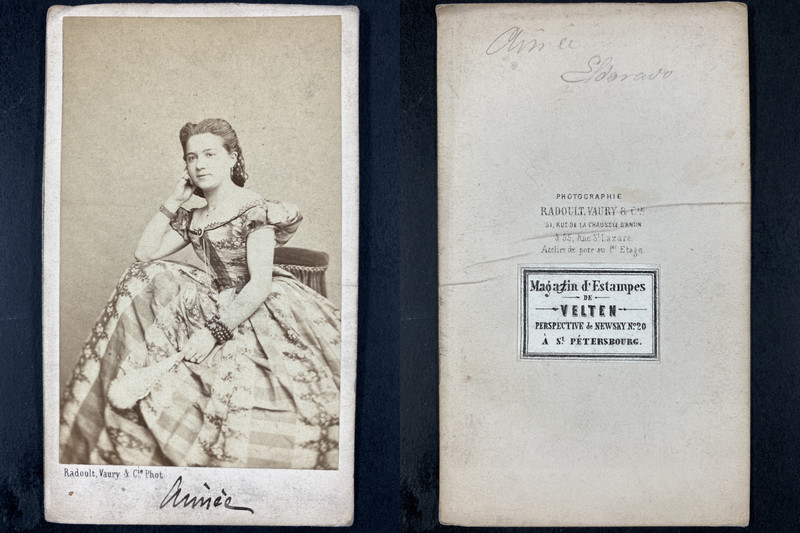 Radoult, Vaury & Cie Phot
Aimée
Aimée
Eldorado
PHOTOGRAPHIE
RADOULT, VAURY & Cie
51, RUE DE LA CHAUSSÉE D'ANTIN
& 55, Rue St Lazare.
Atelier de pose au 1er Etage.
Magazin d'Estampes
DE
VELTEN
PERSPECTIVE de NEWSKY No 20
À St PÉTERSBOURG.